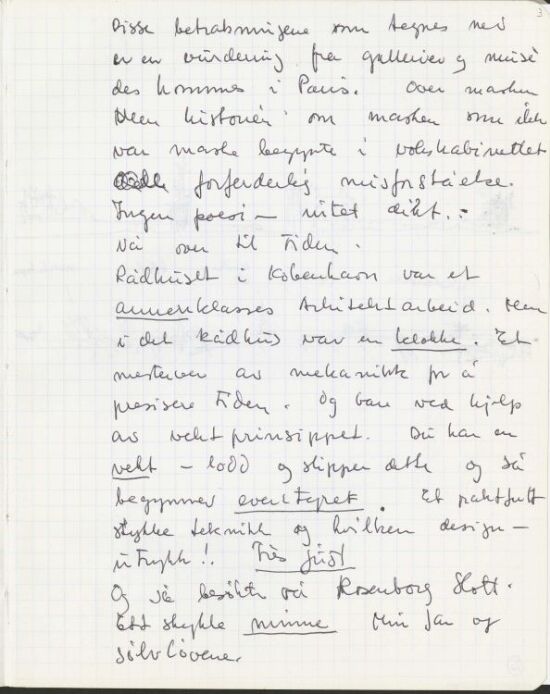 3
Disse betraktningene som tegnes ned
er en vurdering fra gallerier og musé
des hommes i Paris. Over masken
Men historien om masken som ikke
var maske begynte i vokskabinettet
forferdelig misforståelse.
Ingen poesi – intet dikt..
Nå over til Tiden.
Rådhuset i København var et
annenklasses Arkitektarbeid. Men
i det Rådhus var en klokke. Et
mesterverk av mekanikk for å
presisere Tiden. Og bare ved hjelp
av vektprinsippet. Du har en
vekt – lodd og slipper dette og så
begynner eventyret. Et praktfullt
stykke teknikk og hvilken design –
uttrykk!! Très just
Og så besøkte vi Rosenborg Slott.
Ett stykke minne Min far og
sølvløvene.